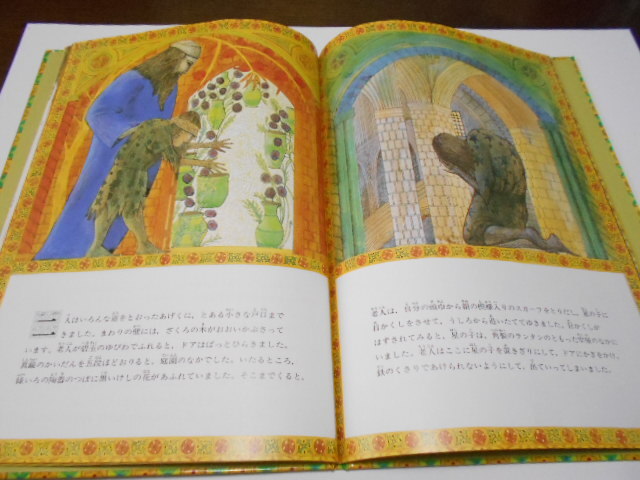 二人はいろんな道をとおったあげくに、とある小さな戸口まで
きました。まわりの壁には、ざくろの木がおおいかぶさって
います。老人が碧玉のゆびわでふれると、ドアはぱっとひらきました。
真鍮のかいだんを五段ほどおりると、庭園のなかでした。いたるところ、
緑いろの陶器のつぼに黒いけしの花があふれていました。そこまでくると、
老人は、自分の頭巾から絹の模様入りのスカーフをとりだし、星の子に
目かくしをさせて、うしろから追いたててゆきました。目かくしが
はずされてみると、星の子は、角製のランタンのともった牢屋のなかに
いました。老人はここに星の子を置きざりにして、ドアにかぎをかけ、
鉄のくさりであけられないようにして、出ていってしまいました。